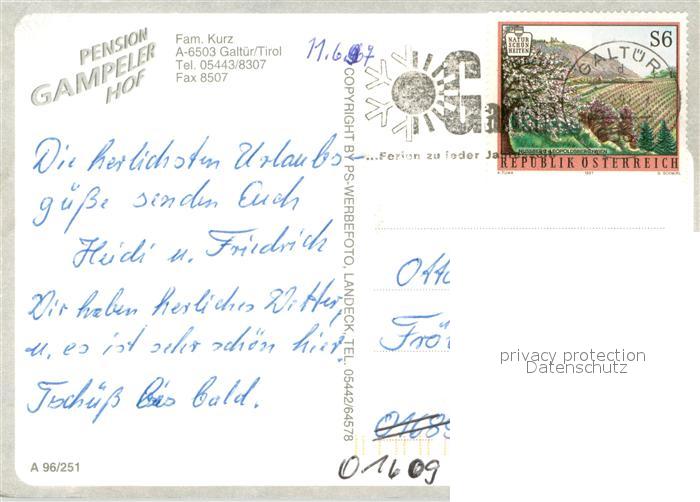 PENSION
GAMPELER
HOF
Fam. Kurz
A-6503 Galtür/Tirol
Tel. 05443/8307
Fax 8507
11.6.97
S6
NATUR
SCHÖN
HEITEN
GALTÜR
...Ferien zu jeder
REPUBLIK ÖSTERREICH
1997
COPYRIGHT BY PS-WERBEFOTO, LANDECK, TEL. 05442/64578
Die herlichsten Urlaubs-
güße senden Euch
Heidi u. Friedrich
Wir haben herliches Wetter,
u. es ist sehr schön hier.
Tschüß bis bald.
Otto
Frö
privacy protection
Datenschutz
01689
01609
A 96/251